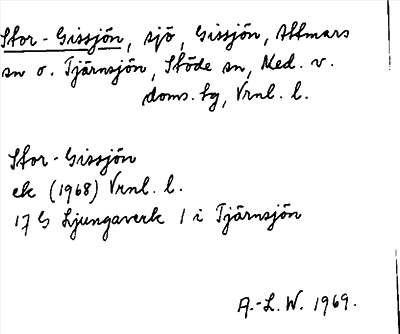 Stor-Gissjön, sjö, Gissjön, Attmars
sn o. Tjärnsjön, Stöde sn, Med. v.
doms. tg, Vrnl. l.
Stor-Gissjön
ek (1968) Vrnl. l.
17 G Ljungaverk 1 i Tjärnsjön
A.-L. W. 1969.